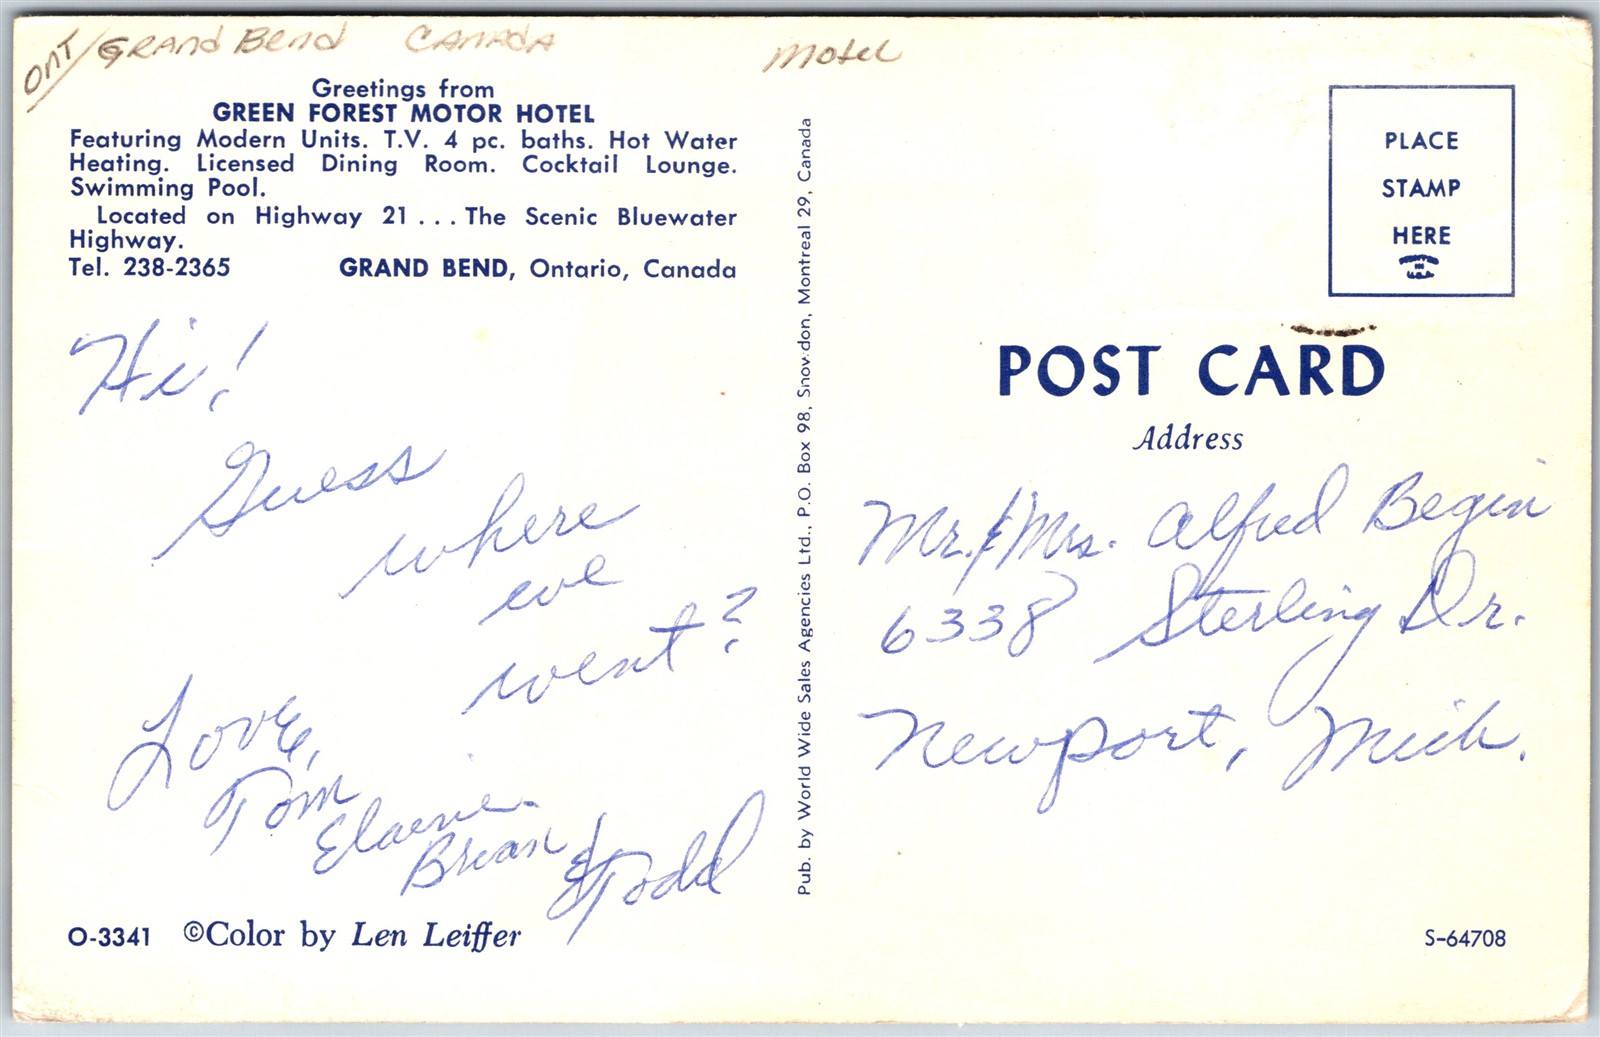 ONT/GRAND BEND CANADA
Motel
Greetings from
GREEN FOREST MOTOR HOTEL
Featuring Modern Units. T.V. 4 pc. baths. Hot Water
Heating. Licensed Dining Room. Cocktail Lounge.
Swimming Pool.
Located on Highway 21 ... The Scenic Bluewater
Highway.
Tel. 238-2365 GRAND BEND, Ontario, Canada
Hi!
Guess
where
we
went?
Love,
Tom
Elaine
Brian &
Todd
O-3341 ©Color by Len Leiffer
Pub. by World Wide Sales Agencies Ltd., P.O. Box 98, Snowdon, Montreal 29, Canada
PLACE
STAMP
HERE
PRINTED
IN
U.S.A.
POST CARD
Address
Mr. & Mrs. Alfred Begin
6338 Sterling Dr.
Newport, Mich.
S-64708